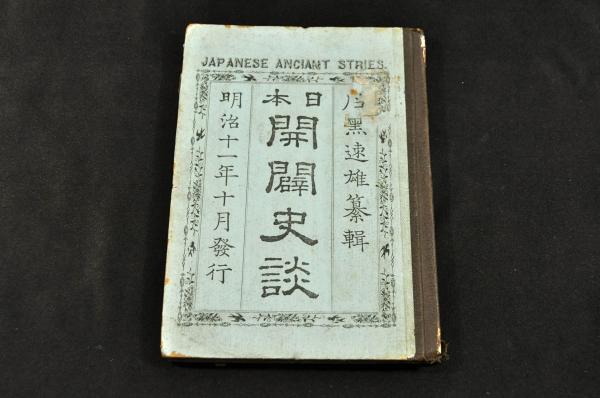 JAPANESE ANCIANT STRIES.
黑速雄纂輯
日本
開闢史談
明治十一年十月發行